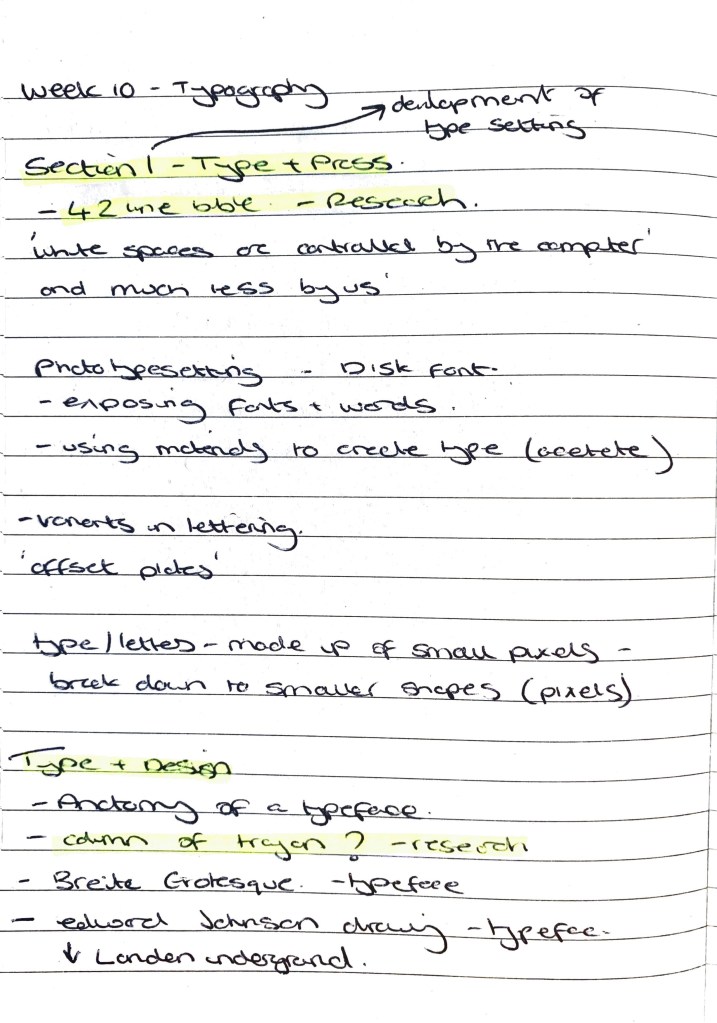 Week 10 - Typography
development of
type setting
Section 1 - Type + Press.
- 42 line bible. - Research.
'white spaces are controlled by the computer'
and much less by us'
Phototypesetting - Disk font.
- exposing fonts + words.
- using materials to create type (acetate)
- variants in lettering.
'offset plates'
type / letters - made up of small pixels -
break down to smaller shapes (pixels)
Type + Design
- Anatomy of a typeface.
- column of trajan ? - research
- Breite Grotesque. - typeface
- edward Johnson drawing - typeface.
↓ London underground.